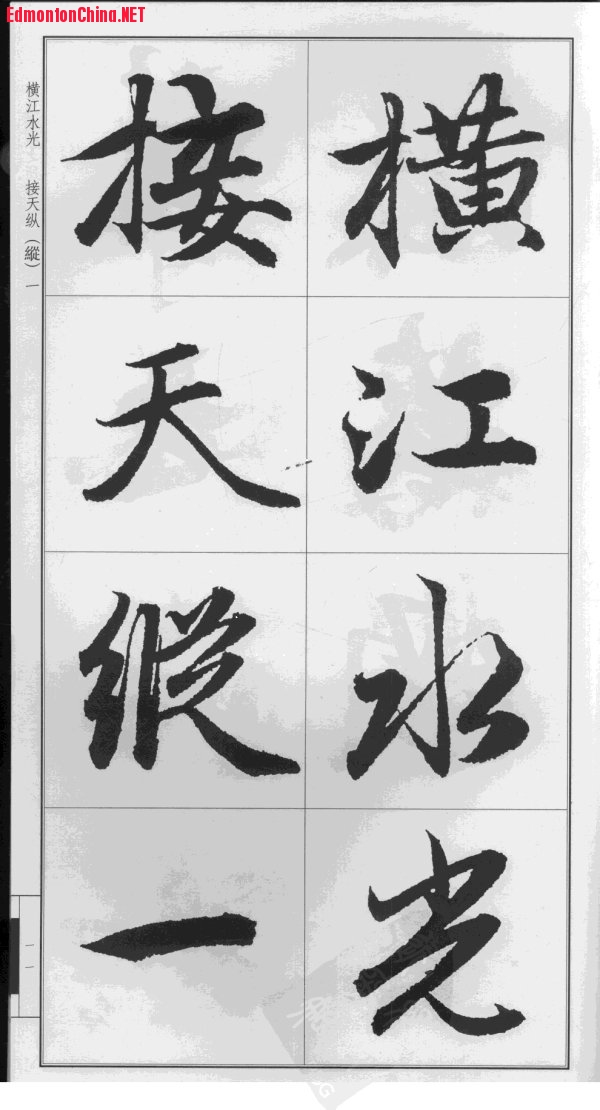 EdmontonChina.NET
橫江水光
接天縱一
横江水光 接天纵（縱）一
一一